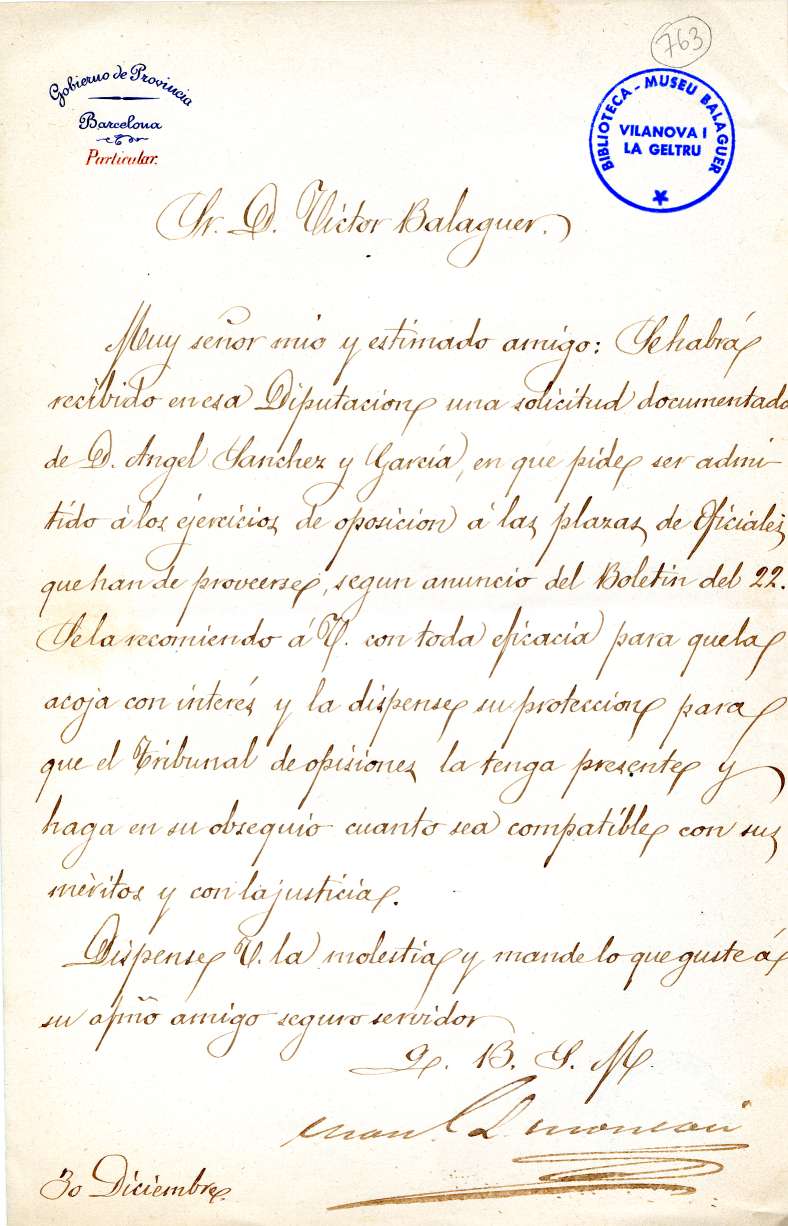 763
Gobierno de Provincia
Barcelona
Particular.
BIBLIOTECA - MUSEU BALAGUER
VILANOVA I
LA GELTRU
Sr. D. Victor Balaguer.
Muy señor mio y estimado amigo: Se habrá
recibido en esa Diputacion una solicitud documentada
de D. Angel Sanchez y Garcia, en que pide ser admi-
tido á los ejercicios de oposicion á las plazas de Oficiales
que han de proveerse, segun anuncio del Boletin del 22.
Se la recomiendo á V. con toda eficacia para que la
acoja con interés y la dispense su proteccion para
que el Tribunal de opisiones la tenga presente y
haga en su obsequio cuanto sea compatible con sus
mèritos y con la justicia.
Dispense V. la molestia y mande lo que guste á
su afmõ amigo seguro servidor
Q. B. S. M.
30 Diciembre.